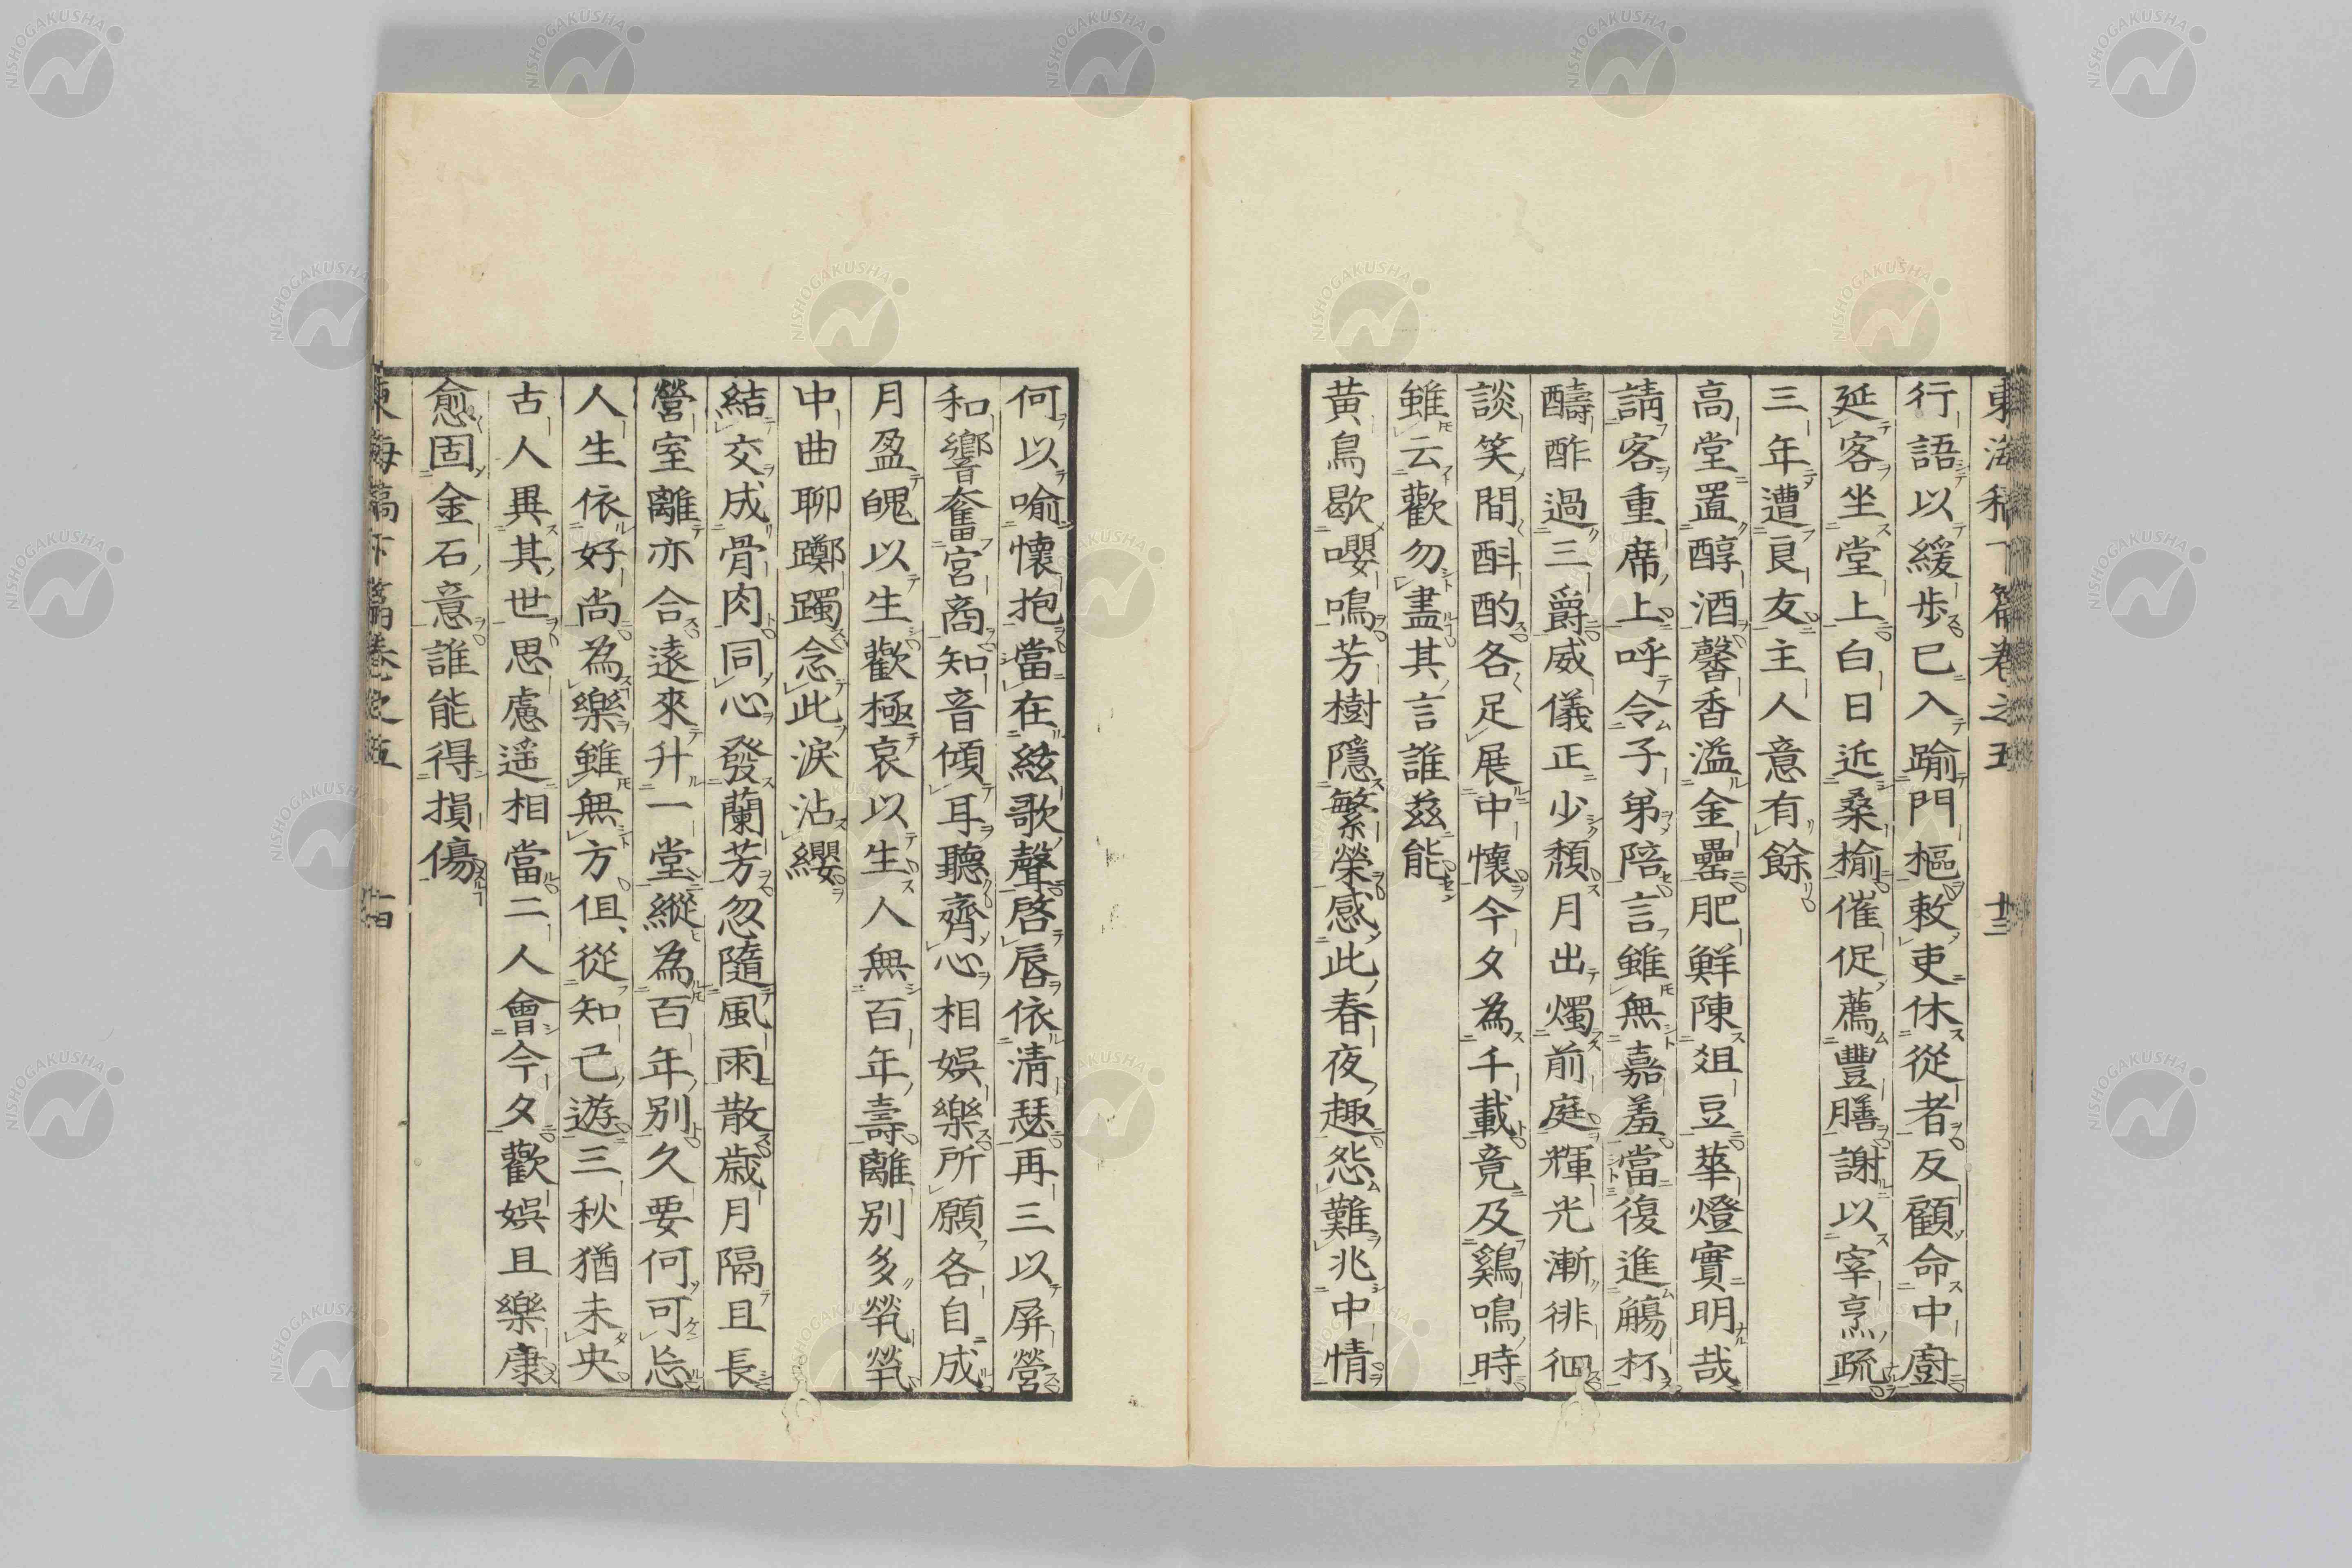 東海稿下篇卷之五 十三
行語以緩步已入踰門樞敕吏休從者反顧命中廚
延客坐堂上白日近桑榆催促薦豐膳謝以宰烹疏
三年遭良友主人意有餘
高堂置醇酒馨香溢金罍肥鮮陳俎豆華燈實明哉
請客重席上呼令子弟陪言雖無嘉羞當復進觴杯
醻酢過三爵威儀正少頹月出燭前庭輝光漸徘徊
談笑間斟酌各足展中懷今夕為千載竟及鷄鳴時
雖云歡勿盡其言誰茲能
黃鳥歇嚶鳴芳樹隱繁榮感此春夜趣怨難兆中情
何以喻懷抱當在絃歌聲啓唇依淸瑟再三以屏營
和響奮宮商知音傾耳聽齊心相娛樂所願各自成
月盈魄以生歡極哀以生人無百年壽離別多煢煢
中曲聊躑躅念此淚沾纓
結交成骨肉同心發蘭芳忽隨風雨散歲月隔且長
營室離亦合遠來升一堂縱為百年別久要何可忘
人生依好尚為樂雖無方但從知己遊三秋猶未央
古人異其世思慮遥相當二人會今夕歡娛且樂康
愈固金石意誰能得損傷
東海稿下篇卷之五 十四
NISHOGAKUSHA